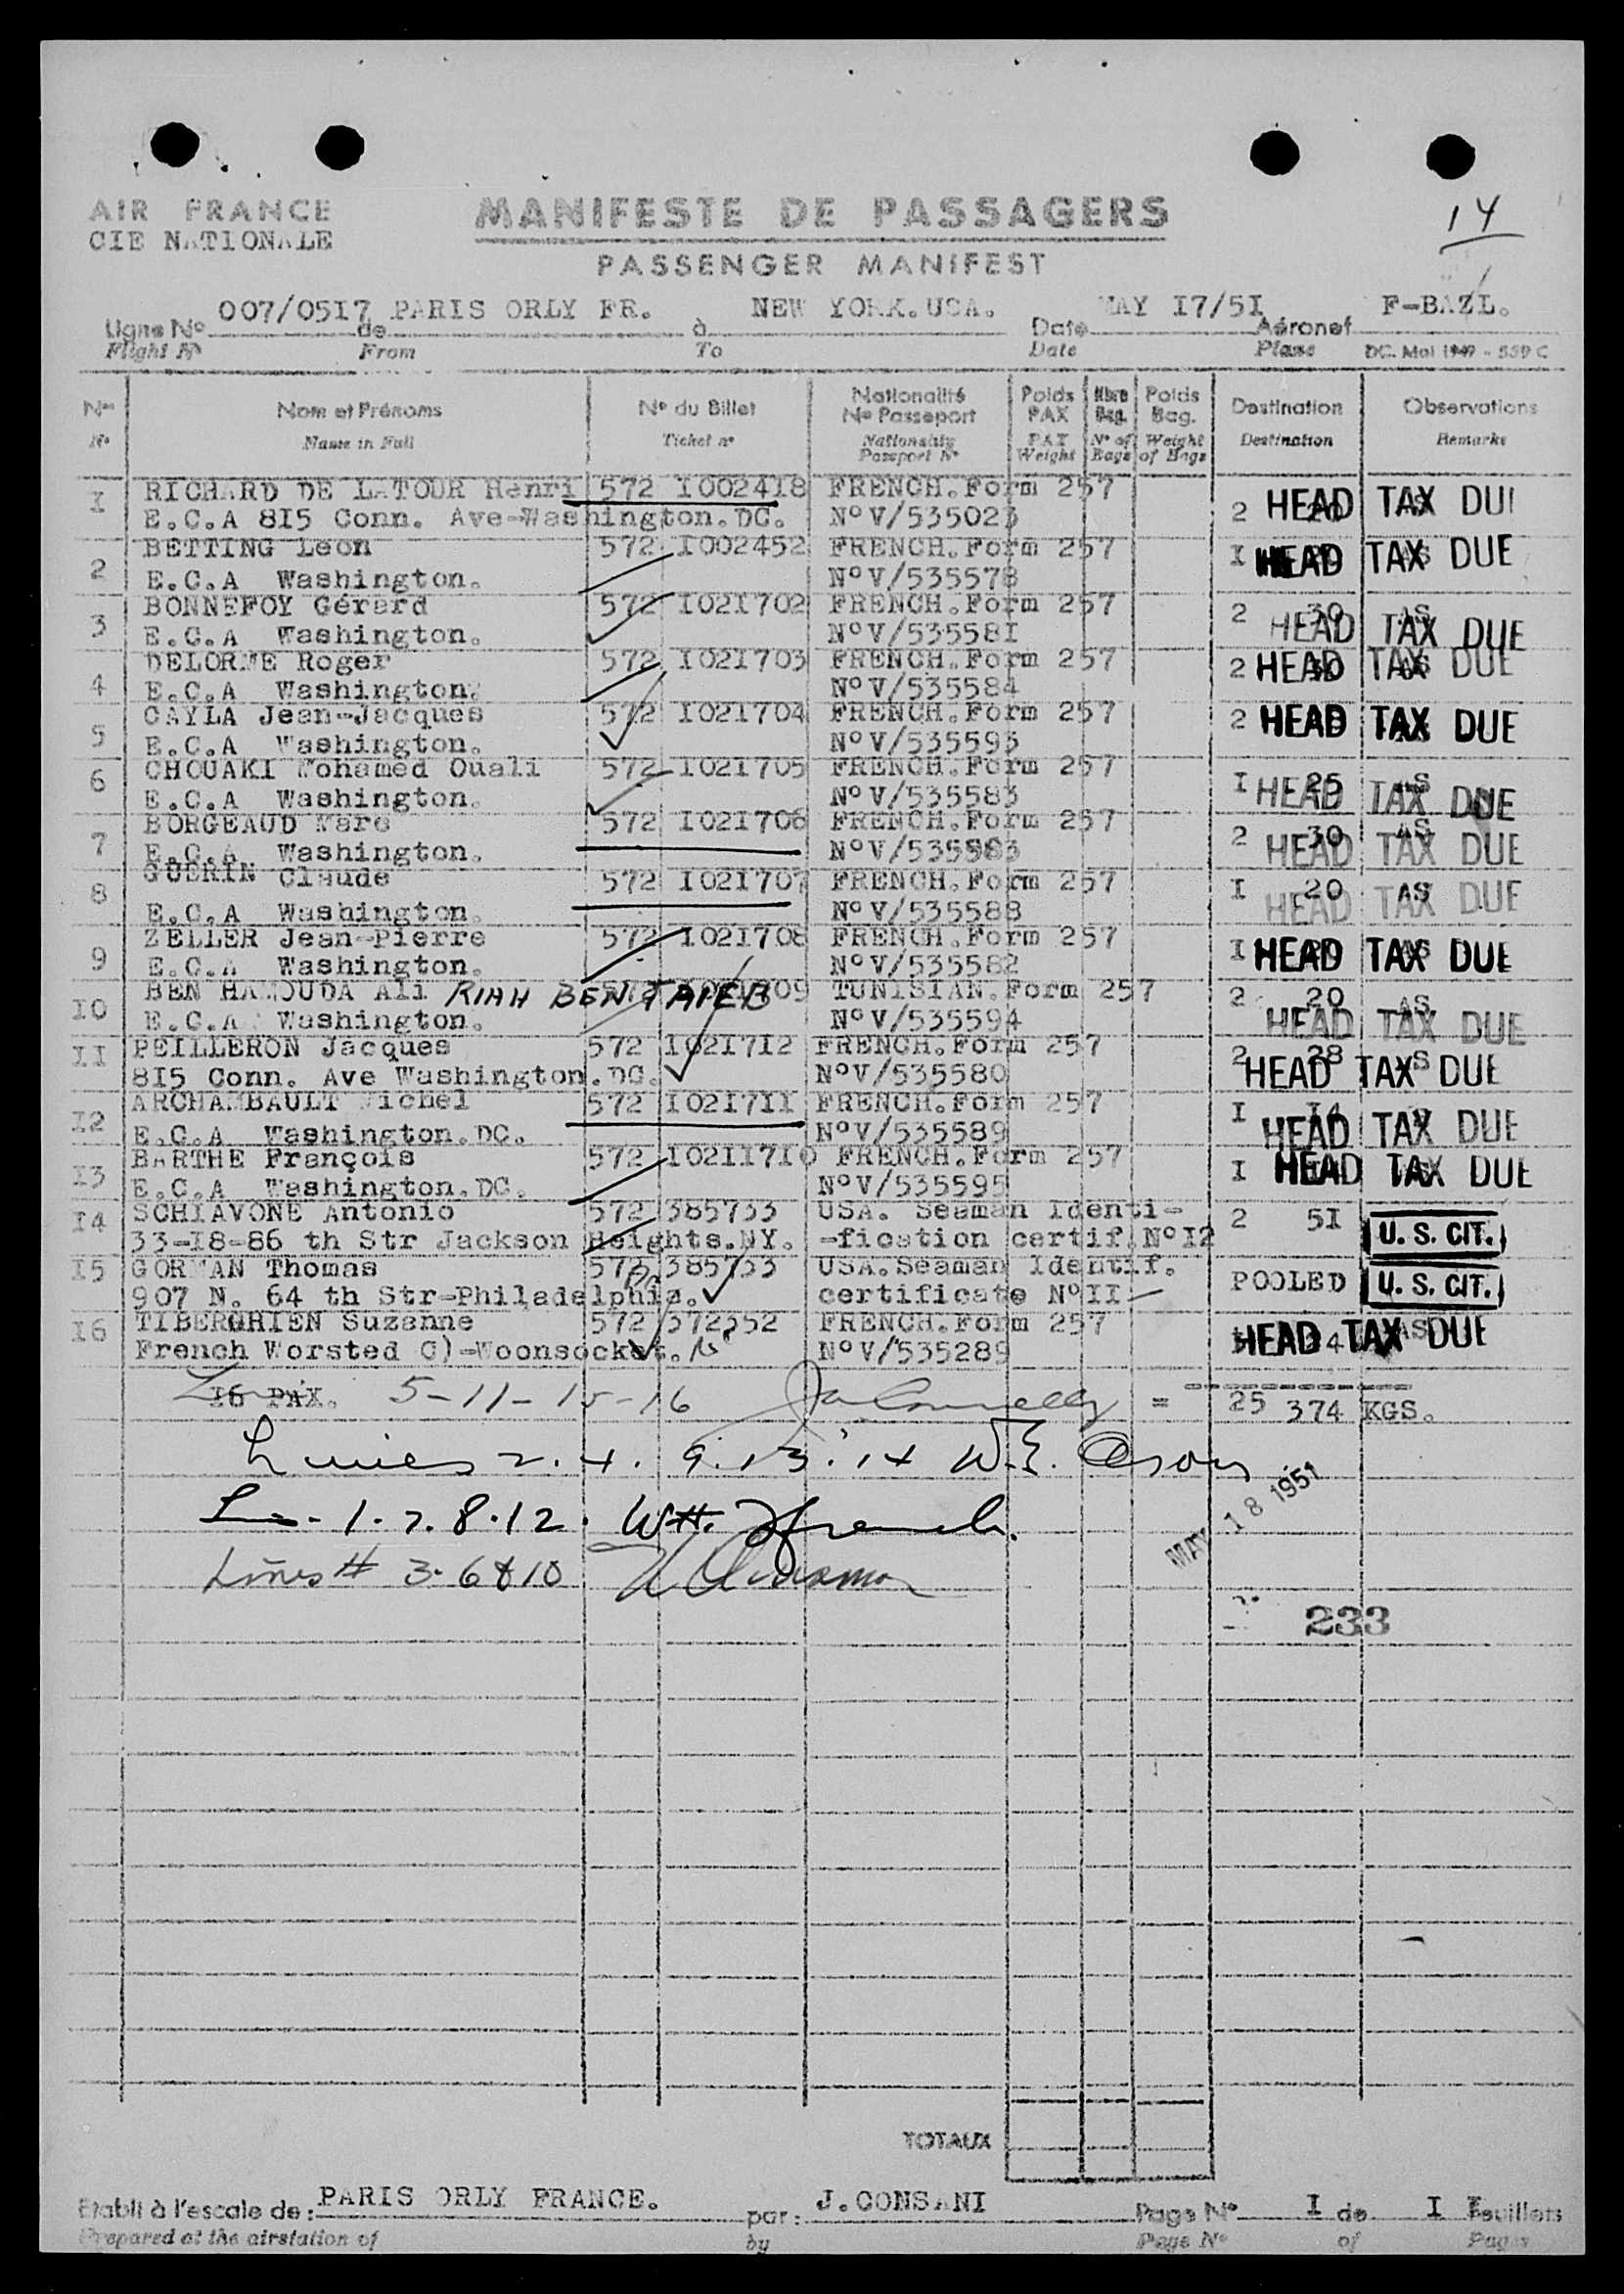 AIR FRANCE
CIE NATIONALE
MANIFESTE DE PASSAGERS
PASSENGER MANIFEST
14
Ligne No 007/0517 de PARIS ORLY FR. à NEW YORK.USA. Date MAY I7/5I Aéronef F-BAZL.
Flight No From To Date Plane DC. Mai 1949 - 559 C
Nos Nom et Prénoms No du Billet Nationalité No Passeport Poids PAX Nbre Bag. Poids Bag. Destination Observations
No Name in Full Ticket no Nationality Passport No PAX Weight No of Bags Weight of Bags Destination Remarks
I RICHARD DE LATOUR Henri 572 I002418 FRENCH.Form 257
E.C.A 8I5 Conn. Ave-Washington.DC. NoV/535023 2 HEAD TAX DUE
2 BETTING Leon 572 I002452 FRENCH.Form 257 I HEAD TAX DUE
E.C.A Washington. NoV/535578
3 BONNEFOY Gérard 572 I02I702 FRENCH.Form 257 2 30 AS HEAD TAX DUE
E.C.A Washington. NoV/53558I
4 DELORME Roger 572 I02I703 FRENCH.Form 257 2 30 AS HEAD TAX DUE
E.C.A Washington. NoV/535584
5 CAYLA Jean-Jacques 572 I02I704 FRENCH.Form 257 2 HEAD TAX DUE
E.C.A Washington. NoV/535593
6 CHOUAKI Mohamed Ouali 572 I02I705 FRENCH.Form 257 I 25 AS HEAD TAX DUE
E.C.A Washington. NoV/535583
7 BORGEAUD Marc 572 I02I706 FRENCH.Form 257 2 30 AS HEAD TAX DUE
E.C.A Washington. NoV/535583
8 GUERIN Claude 572 I02I707 FRENCH.Form 257 I 20 AS HEAD TAX DUE
E.C.A Washington. NoV/535588
9 ZELLER Jean-Pierre 572 I02I708 FRENCH.Form 257 I HEAD TAX DUE
E.C.A Washington. NoV/535582
I0 BEN HAMOUDA Ali RIAH BEN TAIEB 09 TUNISIAN.Form 257 2 20 AS HEAD TAX DUE
E.C.A Washington. NoV/535594
II PEILLERON Jacques 572 I02I7I2 FRENCH.Form 257 2 28 AS HEAD TAX DUE
8I5 Conn. Ave Washington.DC. NoV/535580
I2 ARCHAMBAULT Michel 572 I02I7II FRENCH.Form 257 I HEAD TAX DUE
E.C.A Washington.DC. NoV/535589
I3 BARTHE François 572 I02II7I0 FRENCH.Form 257 I HEAD TAX DUE
E.C.A Washington.DC. NoV/535595
I4 SCHIAVONE Antonio 572 385733 USA. Seaman Identi- 2 5I U. S. CIT.
33-I8-86 th Str Jackson Heights.NY. -fication certif.NoI2
I5 GORMAN Thomas 572 385733 USA.Seaman Identif. POOLED U. S. CIT.
907 N. 64 th Str-Philadelphia. certificate NoII
I6 TIBERGHIEN Suzanne 572 372352 FRENCH.Form 257 HEAD TAX DUE
French Worsted C)-Woonsocket. NoV/535289
I6 PAX. 5-11-15-16 = 25 374 KGS.
Lines 2. 4. 9. 13. 14 W.E.
1. 7. 8. 12. WH. French.
MAY 18 1951
Lines # 3. 6 & 10
233
TOTAUX
Etabli à l'escale de: PARIS ORLY FRANCE. par: J.CONSANI Page No I de I Feuillets
Prepared at the airstation of by Page No of Pages